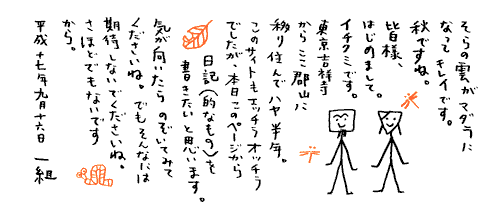 そらの雲がマダラに
なってキレイです。
秋ですね。
皆様、
はじめまして。
イチクミです。
東京吉祥寺
からここ郡山に
移り住んでハヤ半年。
このサイトもエッチラオッチラ
でしたが、本日このページから
日記(的なもの)を
書きたいと思います。
気が向いたらのぞいてみて
くださいね。でもそんなには
期待しないでくださいね。
さほどでもないです
から。
平成十七年九月十六日 一組